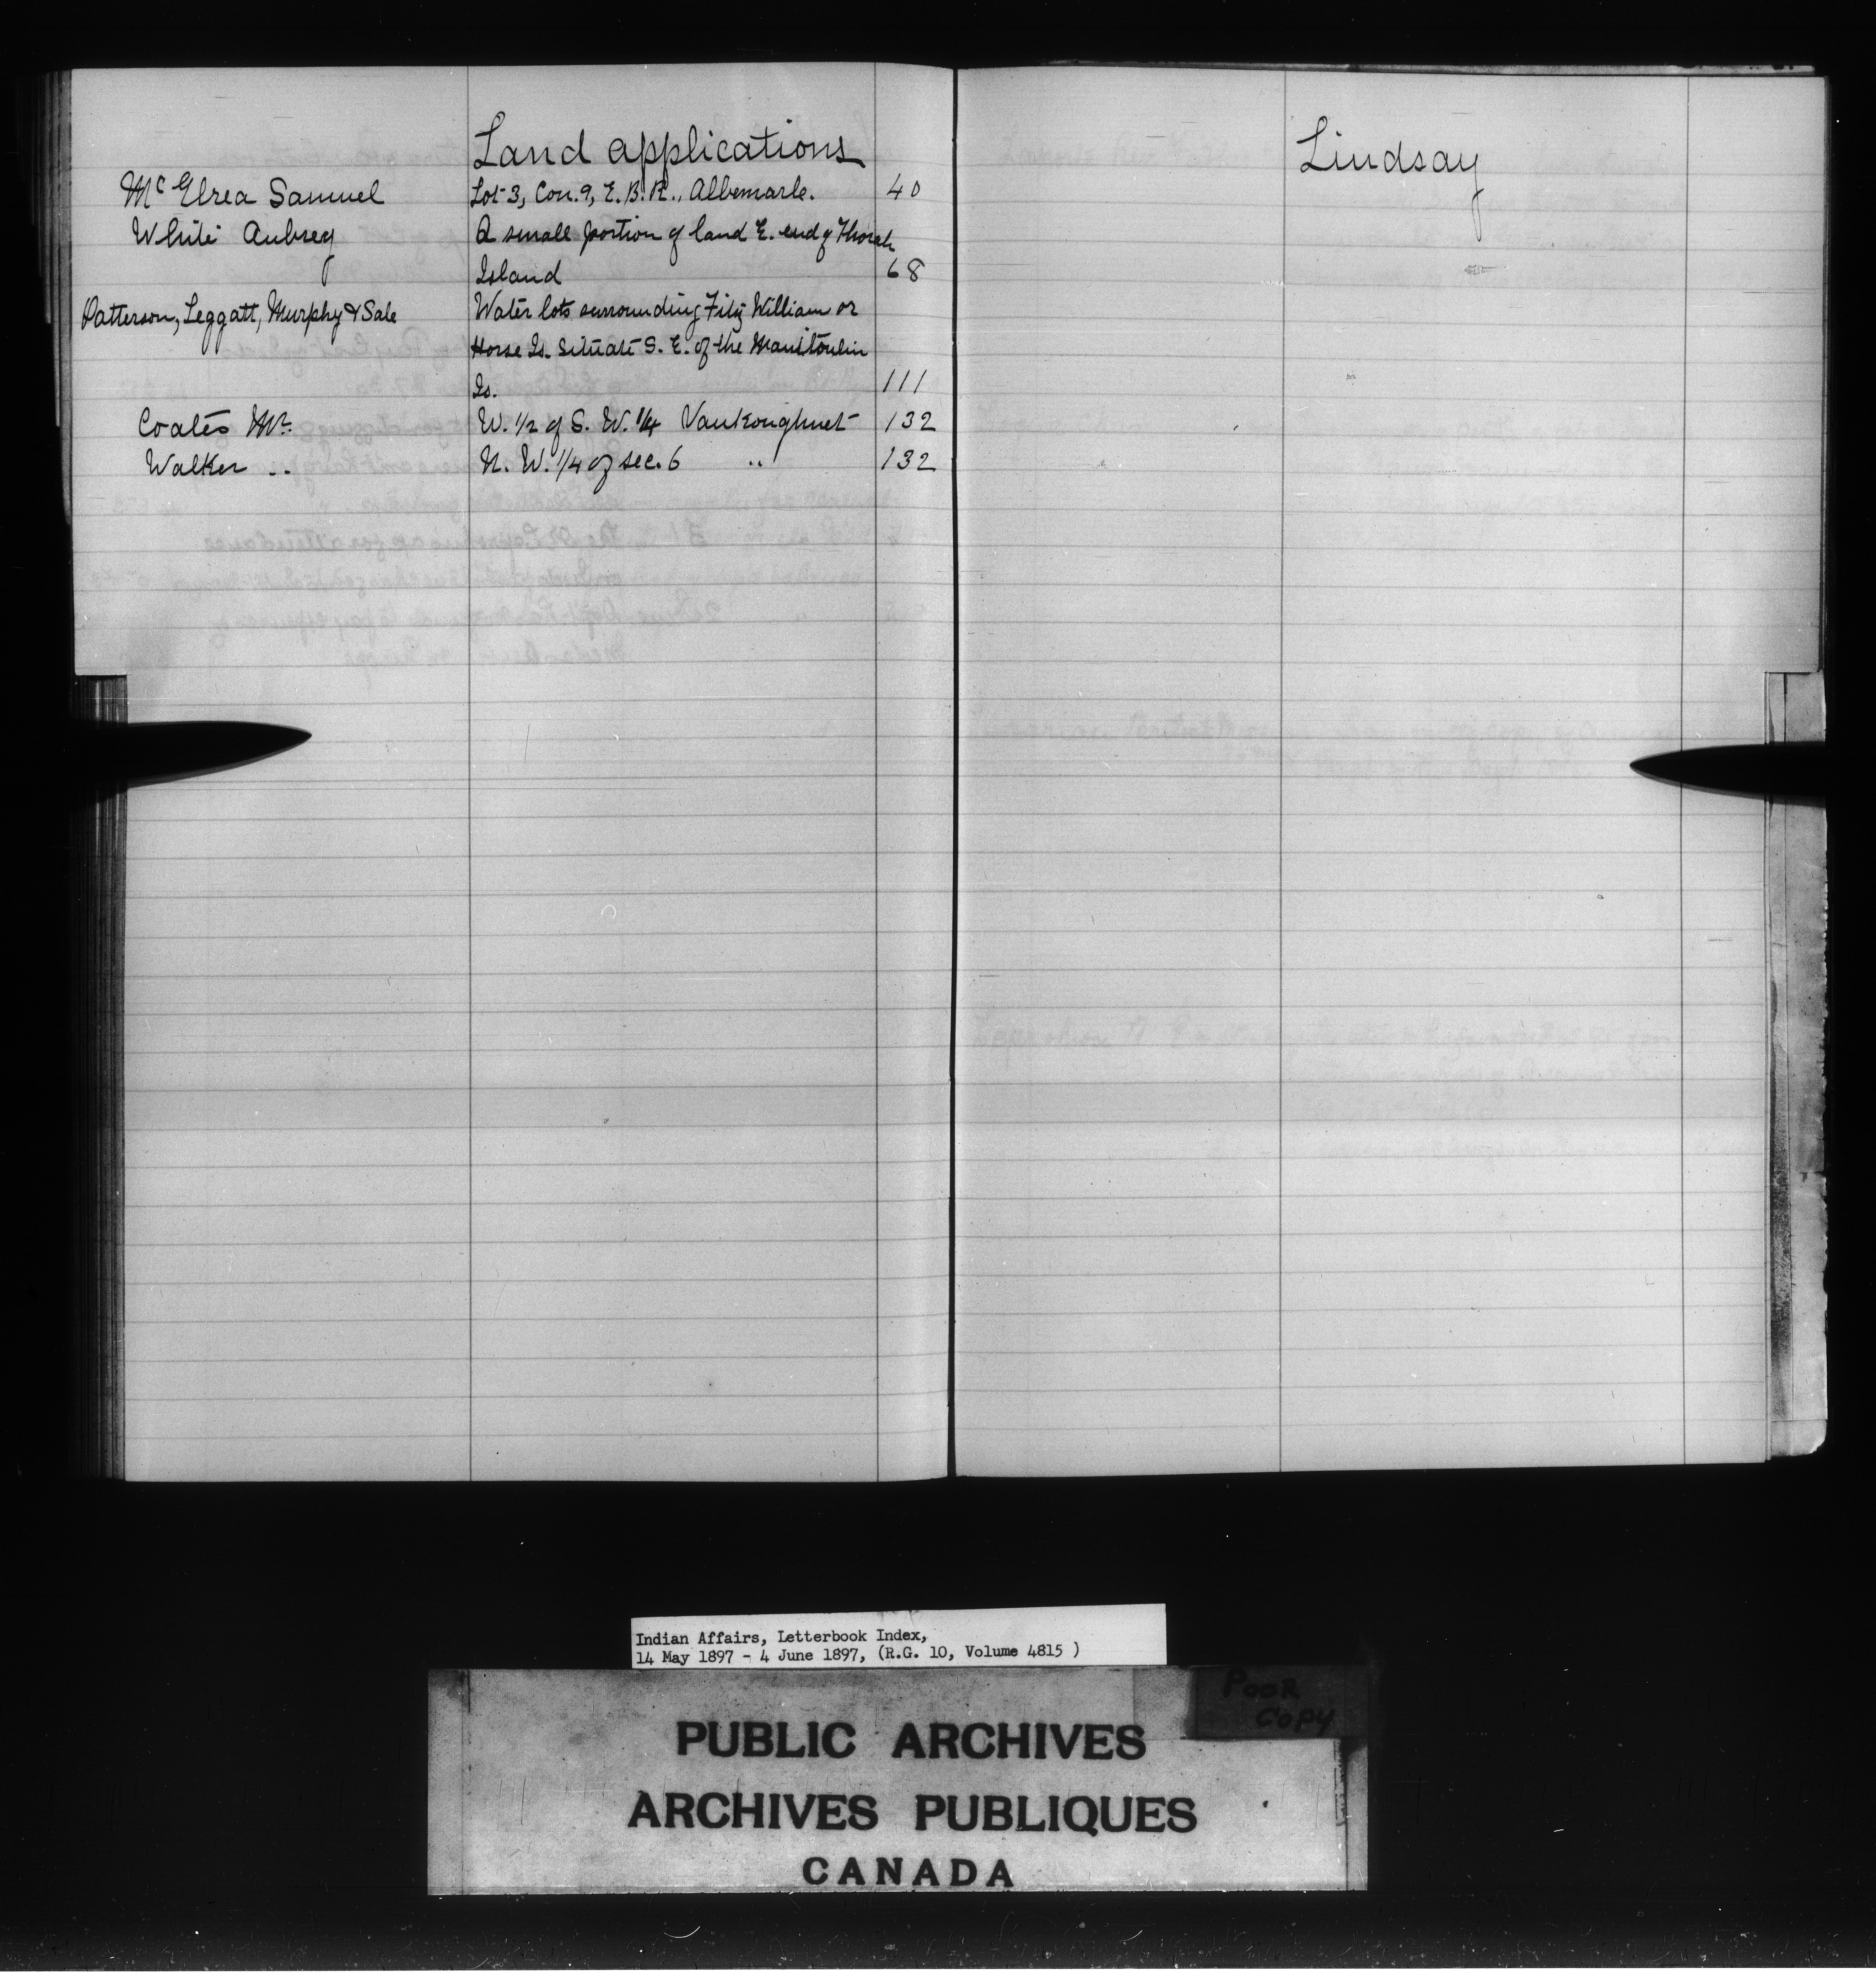 Land applications
Mc Elrea Samuel Lot 3, Con. 9, E. B. R., Albemarle. 40
White Aubrey A small portion of land E. end of Thorah
Island 68
Patterson, Leggatt, Murphy & Sale Water lots surrounding Fitz William or
Horse Is. situate S. E. of the Manitoulin
Is. 111
Coates Mr. W. 1/2 of S. W. 1/4 Vankoughnet 132
Walker .. N. W. 1/4 of sec. 6 .. 132
Lindsay
Indian Affairs, Letterbook Index,
14 May 1897 - 4 June 1897, (R.G. 10, Volume 4815 )
POOR
COPY
PUBLIC ARCHIVES
ARCHIVES PUBLIQUES
CANADA